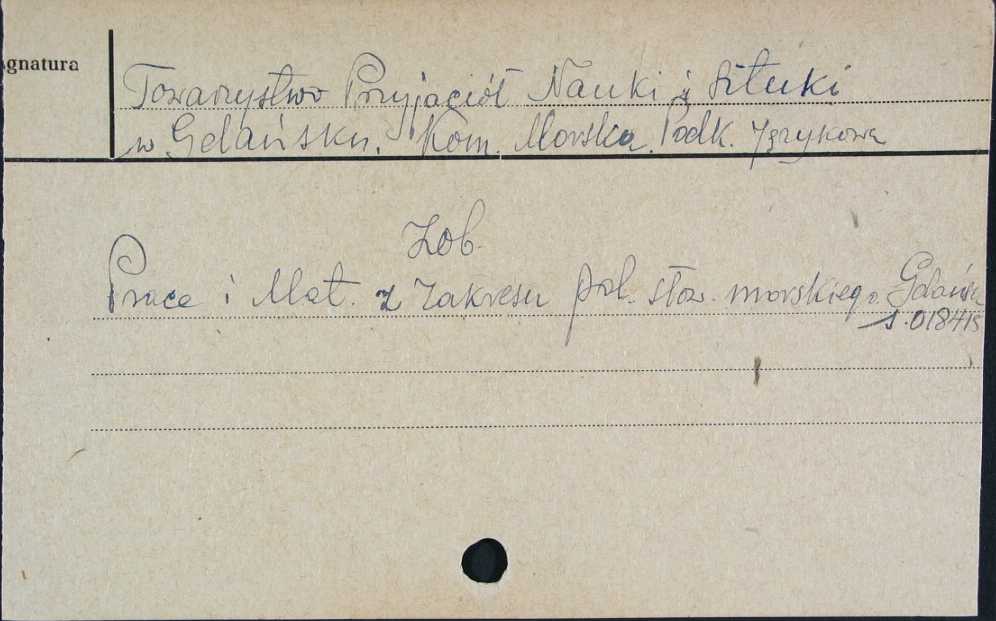 gnatura
Towarzystwo Przyjaciół Nauki i Sztuki
w Gdańsku. Kom. Morska. Podk. Językowa
Zob.
Prace i Mat. z zakresu pol. słow. morskiego. Gdańsk
s. 01841s